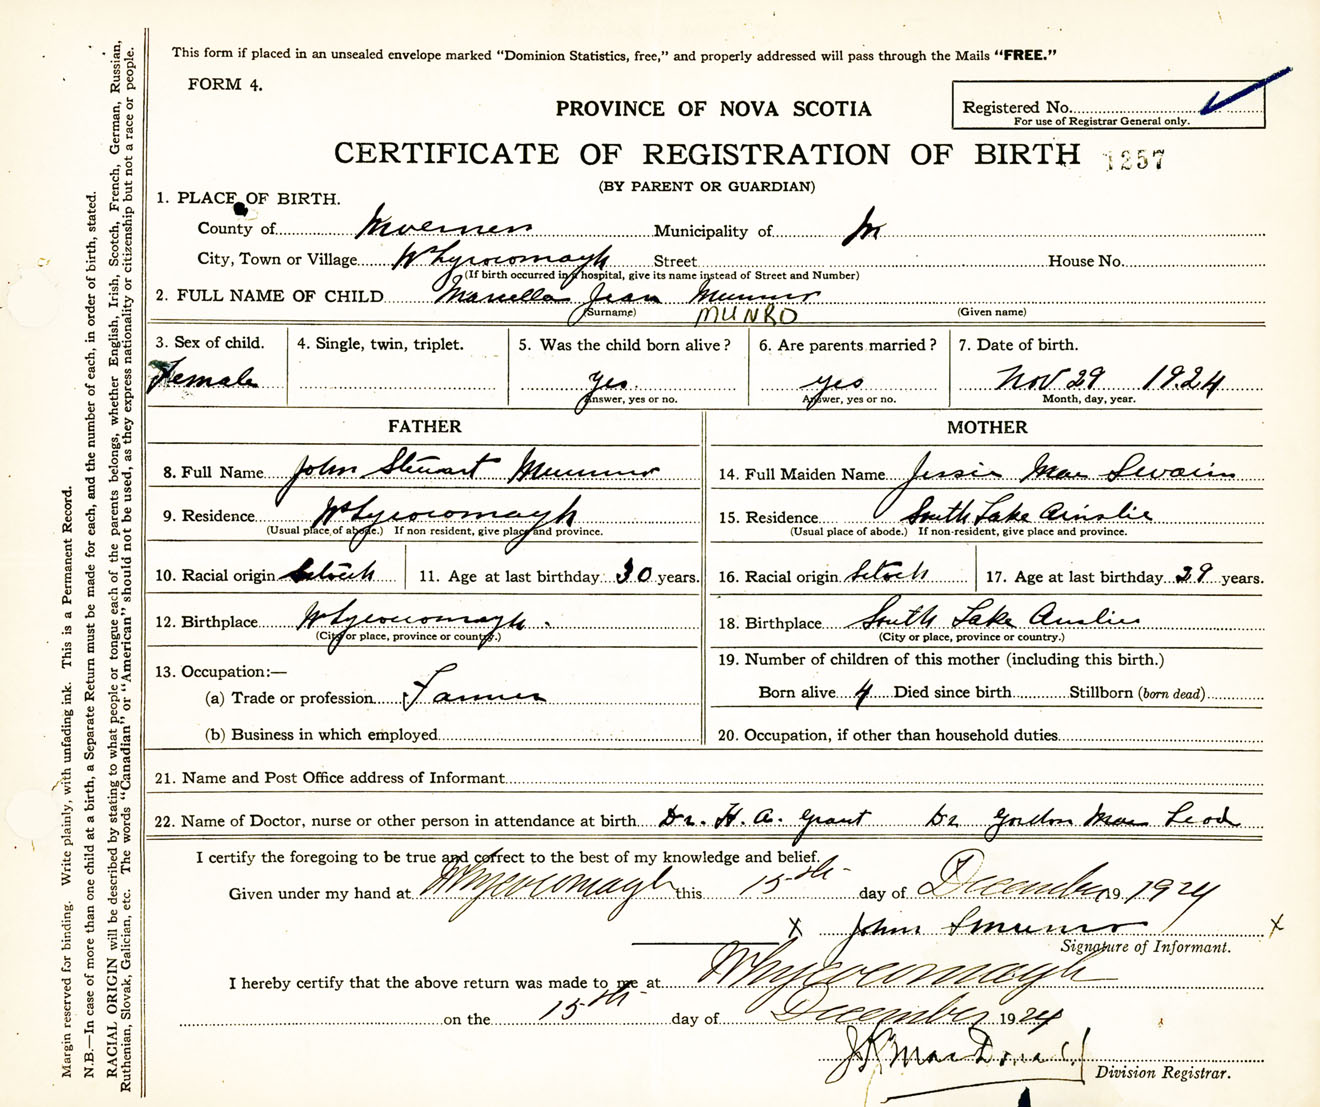 This form if placed in an unsealed envelope marked "Dominion Statistics, free," and properly addressed will pass through the Mails "FREE."
FORM 4.
Registered No.
For use of Registrar General only.
PROVINCE OF NOVA SCOTIA
CERTIFICATE OF REGISTRATION OF BIRTH 1257
(BY PARENT OR GUARDIAN)
1. PLACE OF BIRTH.
County of Inverness Municipality of In
City, Town or Village Whycocomagh Street House No.
(If birth occurred in a hospital, give its name instead of Street and Number)
2. FULL NAME OF CHILD Marcella Jean Munro
(Surname) MUNRO (Given name)
3. Sex of child. 4. Single, twin, triplet. 5. Was the child born alive? 6. Are parents married? 7. Date of birth.
Female yes yes Nov 29 1924
Answer, yes or no. Answer, yes or no. Month, day, year.
FATHER MOTHER
8. Full Name John Stewart Munro 14. Full Maiden Name Jessie Mae Swain
9. Residence Whycocomagh 15. Residence South Lake Ainslie
(Usual place of abode.) If non resident, give place and province. (Usual place of abode.) If non-resident, give place and province.
10. Racial origin Scotch 11. Age at last birthday 30 years. 16. Racial origin Scotch 17. Age at last birthday 29 years.
12. Birthplace Whycocomagh. 18. Birthplace South Lake Ainslie
(City or place, province or country.) (City or place, province or country.)
13. Occupation:— 19. Number of children of this mother (including this birth.)
(a) Trade or profession Farmer Born alive 4 Died since birth Stillborn (born dead)
(b) Business in which employed 20. Occupation, if other than household duties
21. Name and Post Office address of Informant
22. Name of Doctor, nurse or other person in attendance at birth Dr. H. A. Grant Dr Gordon Mac Leod
I certify the foregoing to be true and correct to the best of my knowledge and belief.
Given under my hand at Whycocomagh this 15th day of December 19 1924
X John S Munro X
Signature of Informant.
I hereby certify that the above return was made to me at Whycocomagh
on the 15th day of December 1924
J K MacDonald
Division Registrar.
Margin reserved for binding. Write plainly, with unfading ink. This is a Permanent Record.
N.B.—In case of more than one child at a birth, a Separate Return must be made for each, and the number of each, in order of birth, stated.
RACIAL ORIGIN will be described by stating to what people or tongue each of the parents belongs, whether English, Irish, Scotch, French, German, Russian,
Ruthenian, Slovak, Galician, etc. The words "Canadian" or "American" should not be used, as they express nationality or citizenship but not a race or people.